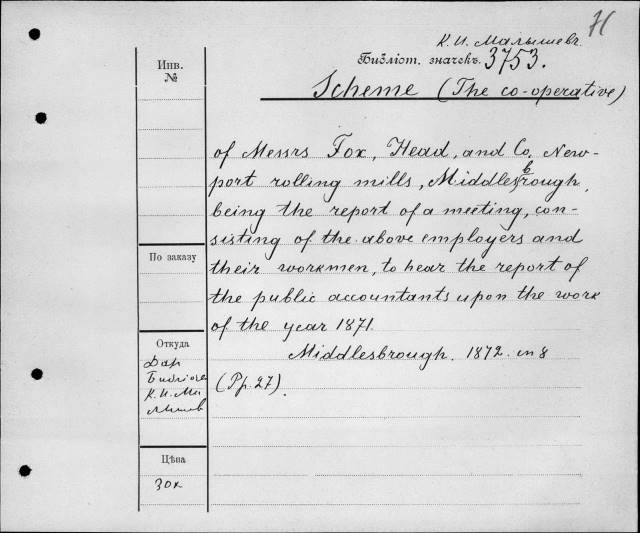 71
К. И. Малышевъ.
Библіот. значекъ. 3753.
Scheme (The co-operative)
of Messrs Fox, Head, and Co. New-
port rolling mills, Middlesbrough,
being the report of a meeting, con-
sisting of the above employers and
their workmen, to hear the report of
the public accountants upon the work
of the year 1871.
Middlesbrough. 1872. in 8
(Pp. 27).
Инв.
№
По заказу
Откуда
Дар
К. И. Ма
лышев
Цѣна
30 к